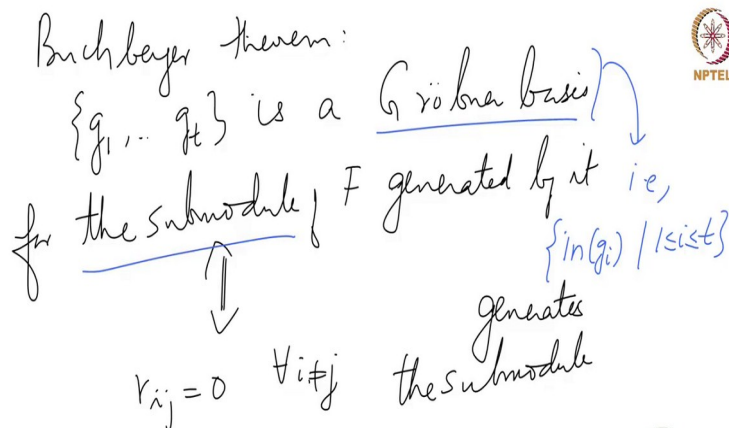 Buchberger theorem:
{g₁, ... gₜ} is a Gröbner basis
for the submodule of F generated by it i.e,
{in(gᵢ) / 1≤i≤t}
generates
rᵢⱼ = 0 ∀ i≠j the submodule
NPTEL